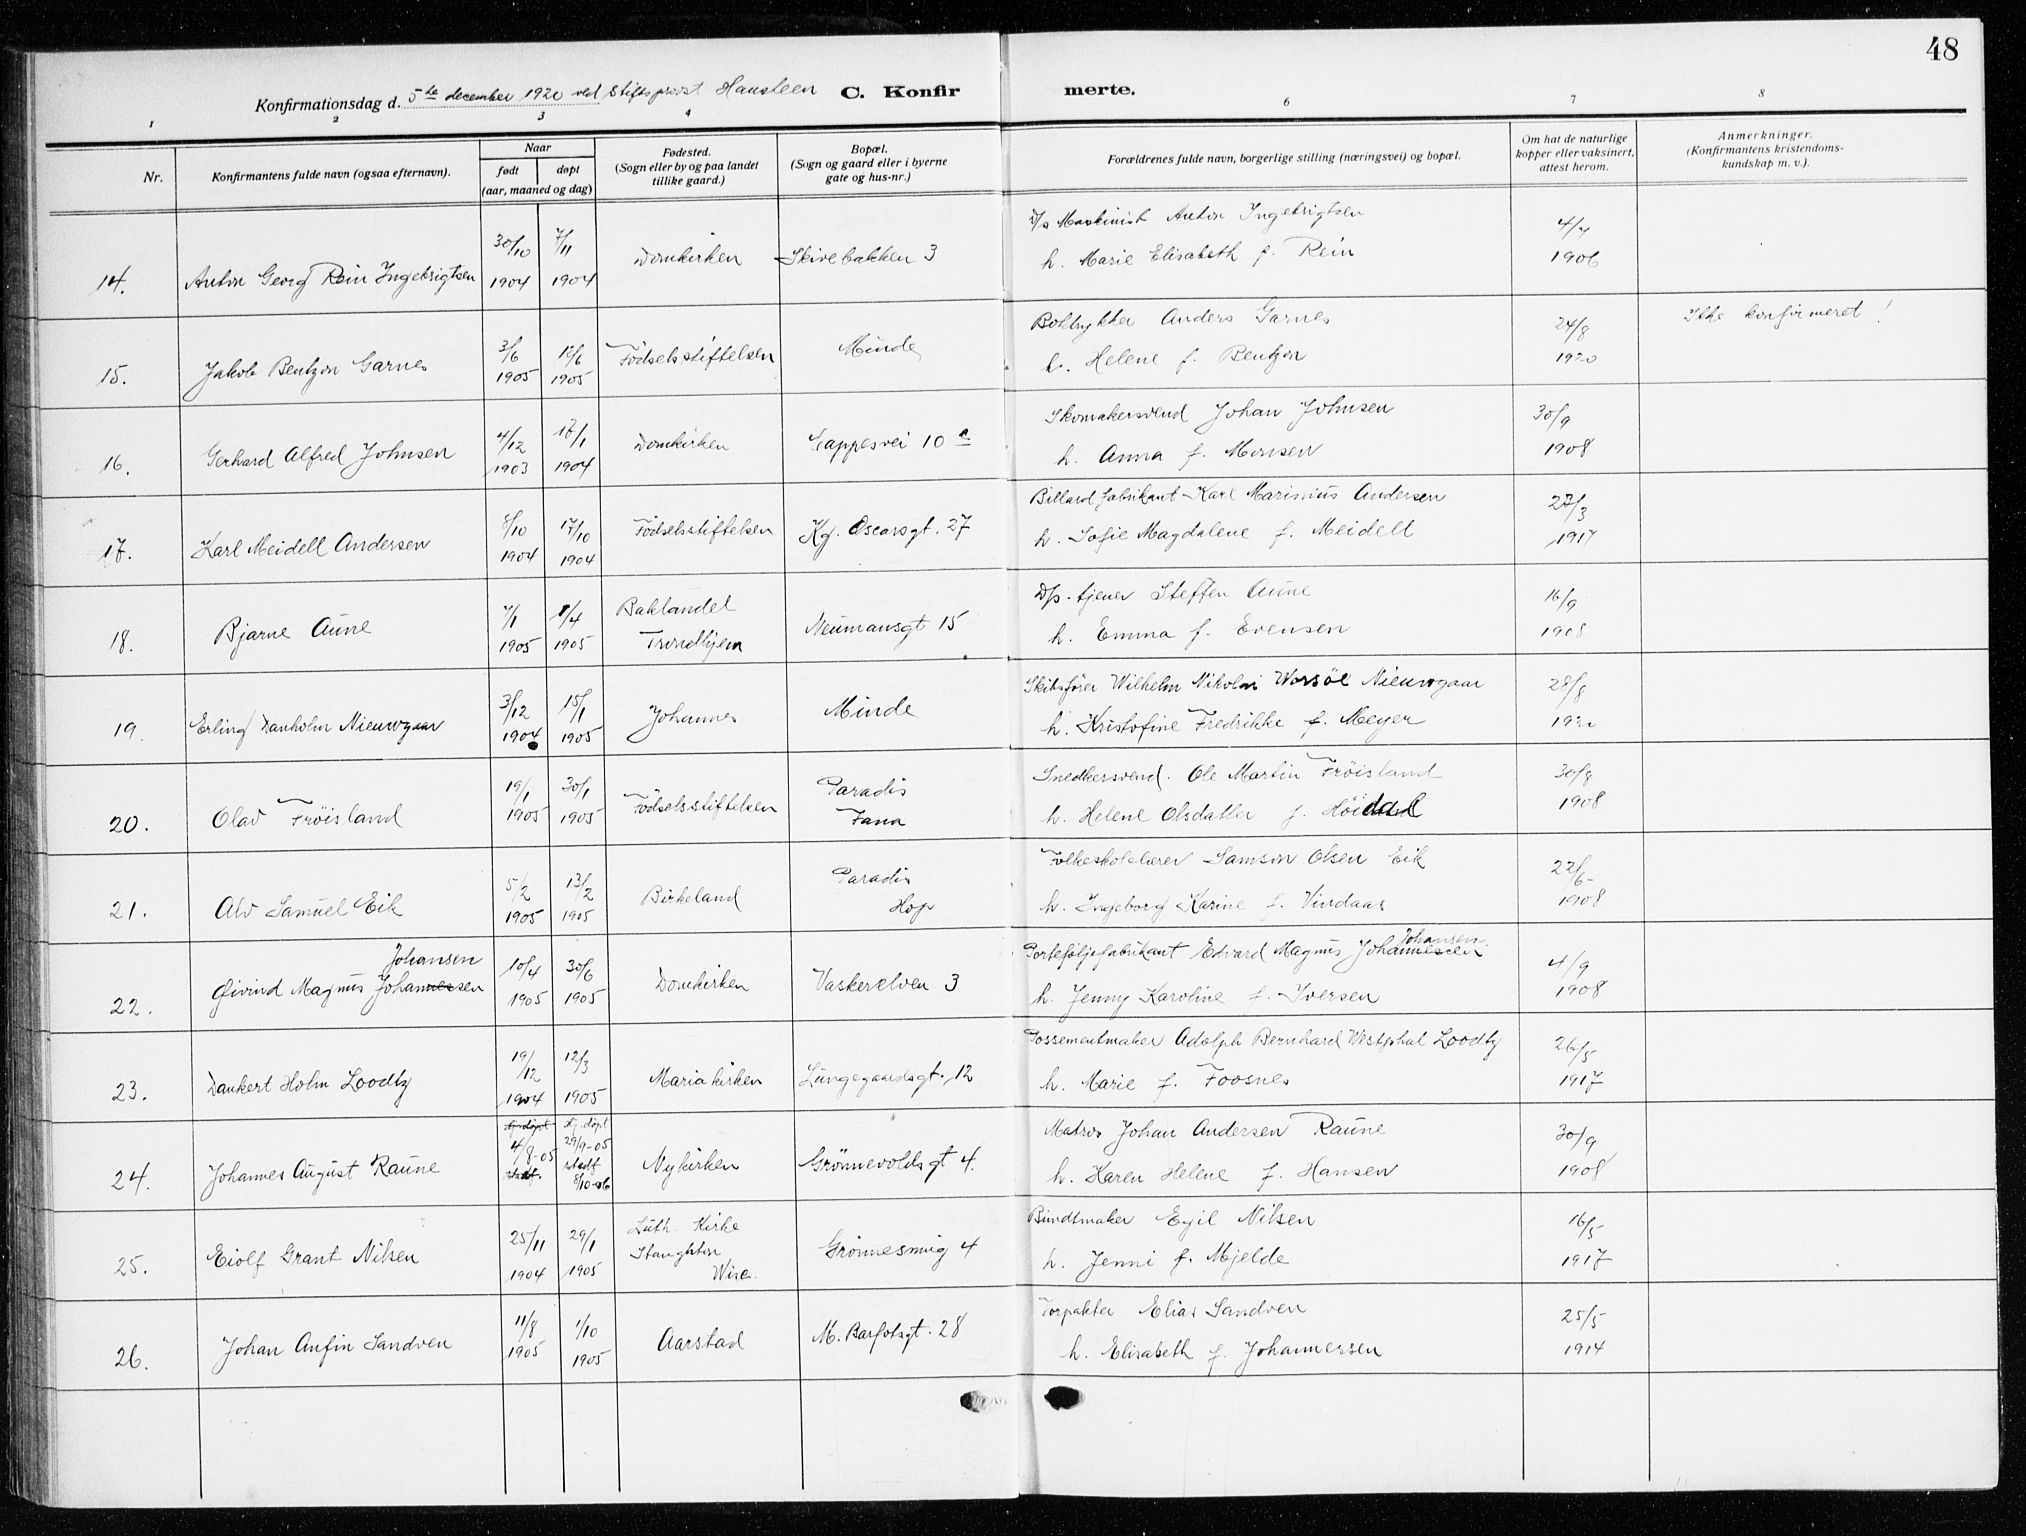 48
Konfirmationsdag d. 5te december 1920 ved Stiftsprovst Hansteen C. Konfirmerte.
1 2 3 4 6 7 8
Nr.
Konfirmantens fulde navn (ogsaa efternavn).
Naar
født døpt
(aar, maaned og dag)
Fødested.
(Sogn eller by og paa landet
tillike gaard.)
Bopæl.
(Sogn og gaard eller i byerne
gate og hus-nr.)
Forældrenes fulde navn, borgerlige stilling (næringsvei) og bopæl.
Om hat de naturlige
kopper eller vaksinert,
attest herom.
Anmerkninger.
(Konfirmantens kristendoms-
kundskap m. v.).
14. Anton Georg Rein Ingebrigtsen 30/10 1904 7/11 1904 Domkirken Skivebakken 3
D/s Maskinist Anton Ingebrigtsen
h. Marie Elisabeth f. Rein
4/4 1906
15. Jakob Bentzon Garnes 3/6 1905 1905 Födselsstiftelsen Minde
Boktrykker Anders Garnes
h. Helene f. Bentzon
24/8 1920
Ikke konfirmeret!
16. Gerhard Alfred Johnsen 4/12 1903 17/1 1904 Domkirken Cappesvei 10 a
Skomakersvend Johan Johnsen
h. Anna f. Monsen
30/9 1908
17. Karl Meidell Andersen 8/10 1904 17/10 1904 Födselsstiftelsen Kg. Oscarsgt. 27
Billard fabrikant Karl Marinius Andersen
h. Sofie Magdalene f. Meidell
27/3 1917
18. Bjarne Aune 7/1 1905 1/4 1905 Baklandet
Trondhjem
Neumansgt 15
D/s. tjener Steffen Aune
h. Emma f. Evensen
16/9 1908
19. Erling Danholm Nieuwgaar 3/12 1904 15/1 1905 Johannes Minde
Skibsfører Wilhelm Nikolai Worsöe Nieuwgaar
h. Kristofine Fredrikke f. Meyer
28/8 1920
20. Olav Fröisland 19/1 1905 30/1 1905 Födselsstiftelsen Paradis
Fana
Snedkersvend. Ole Martin Fröisland
h. Helene Olsdatter f. Höidal
30/8 1908
21. Alv Samuel Eik 5/2 1905 13/2 1905 Birkeland Paradis
Hop
Folkeskolelærer Samson Olsen Eik
h. Ingeborg Karine f. Vindaas
22/6 1908
22. Øivind Magnus Johannessen Johansen 10/4 1905 30/6 1905 Domkirken Vaskerelven 3
Porteföljefabrikant Edvard Magnus Johannessen Johansen
h. Jenny Karoline f. Iversen
4/9 1908
23. Dankert Holm Loodtz 19/12 1904 12/3 1905 Mariakirken Lungegaardsgt. 12
Possementmaker Adolph Bernhard Westphal Loodtz
h. Marie f. Foosnes
26/5 1917
24. Johannes August Raune hj. döpt 4/8-05 stadf. hj. döpt 29/9-05 stadf 8/10-06 Nykirken Grönnevoldsgt 4.
Matros Johan Andersen Raune
h. Karen Helene f. Hansen
30/9 1908
25. Eiolf Grant Nilsen 25/11 1904 29/1 1905 Luth. Kirke
Staughton
Wisc.
Grönnesmug 4
Bundtmaker Egil Nilsen
h. Jenni f. Mjelde
16/5 1917
26. Johan Anfin Sandven 11/8 1905 1/10 1905 Aarstad M. Barfotsgt. 28
Torpakter Elias Sandven
h. Elisabeth f. Johannessen
25/5 1914